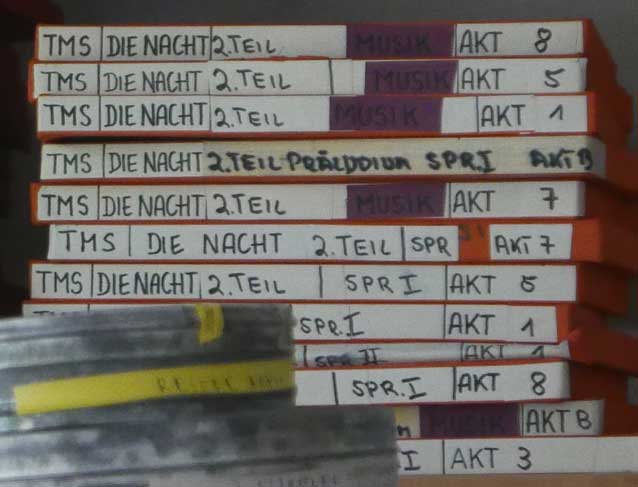 TMS DIE NACHT 2.TEIL MUSIK AKT 8
TMS DIE NACHT 2.TEIL MUSIK AKT 5
TMS DIE NACHT 2.TEIL MUSIK AKT 1
TMS DIE NACHT 2.TEIL PRÄLUDIUM SPR.I AKT B
TMS DIE NACHT 2.TEIL MUSIK AKT 7
TMS DIE NACHT 2.TEIL SPR AKT 7
TMS DIE NACHT 2.TEIL SPR I AKT 5
SPR.I AKT 1
SPR II AKT 1
SPR.I AKT 8
MUSIK AKT B
I AKT 3